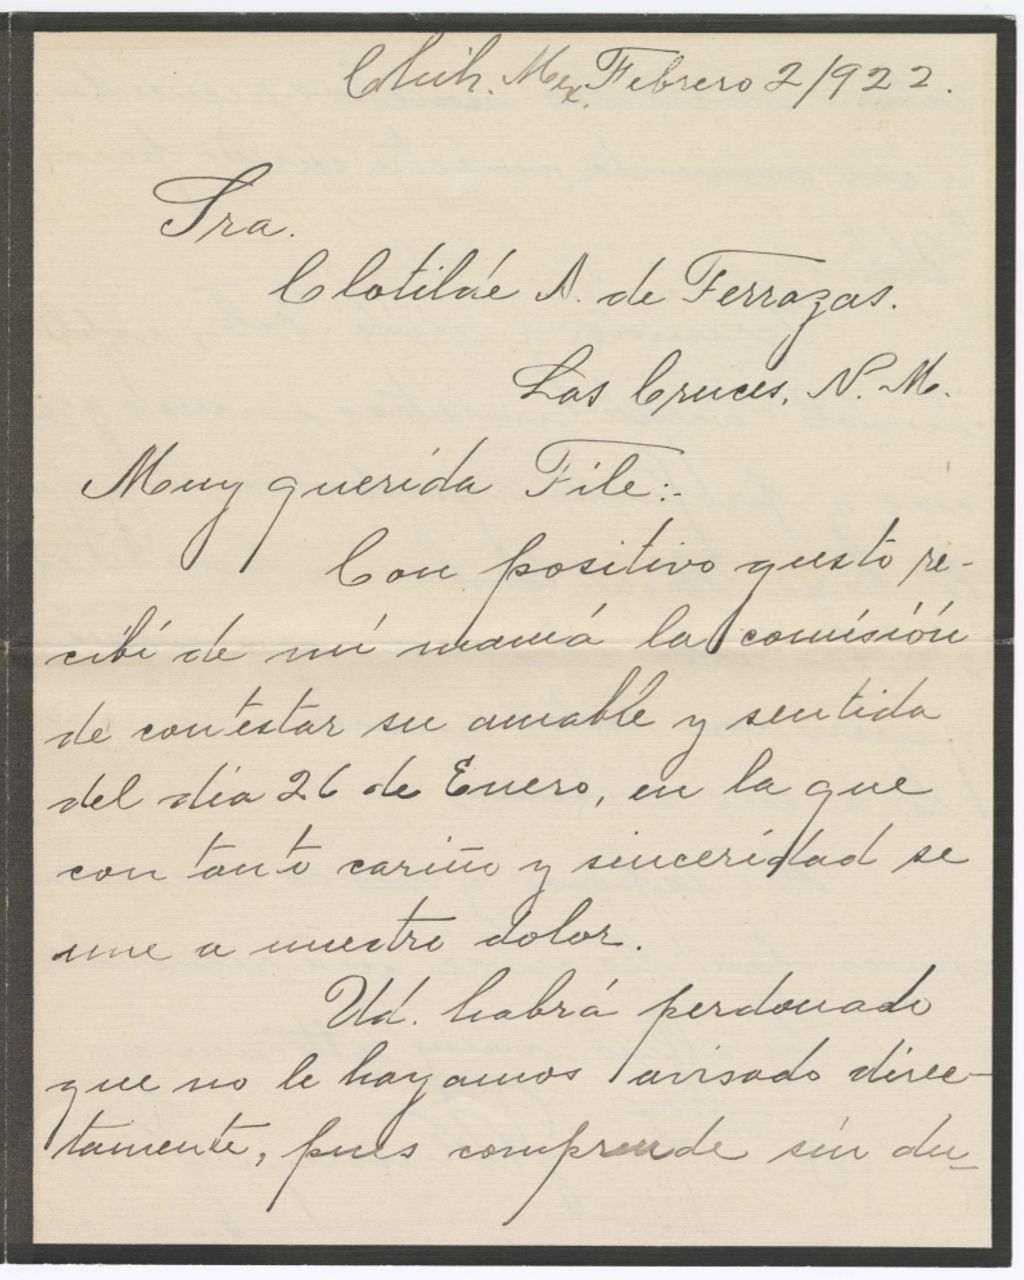 Chih. Mex. Febrero 2/922.
Sra.
Clotilde A. de Terrazas.
Las Cruces, N. M.
Muy querida Tile:.
Con positivo gusto re-
cibí de mi mamá la comisión
de contestar su amable y sentida
del día 26 de Enero, en la que
con tanto cariño y sinceridad se
une a nuestro dolor.
Ud. habrá perdonado
que no le hayamos avisado direc-
tamente, pues comprende sin du-